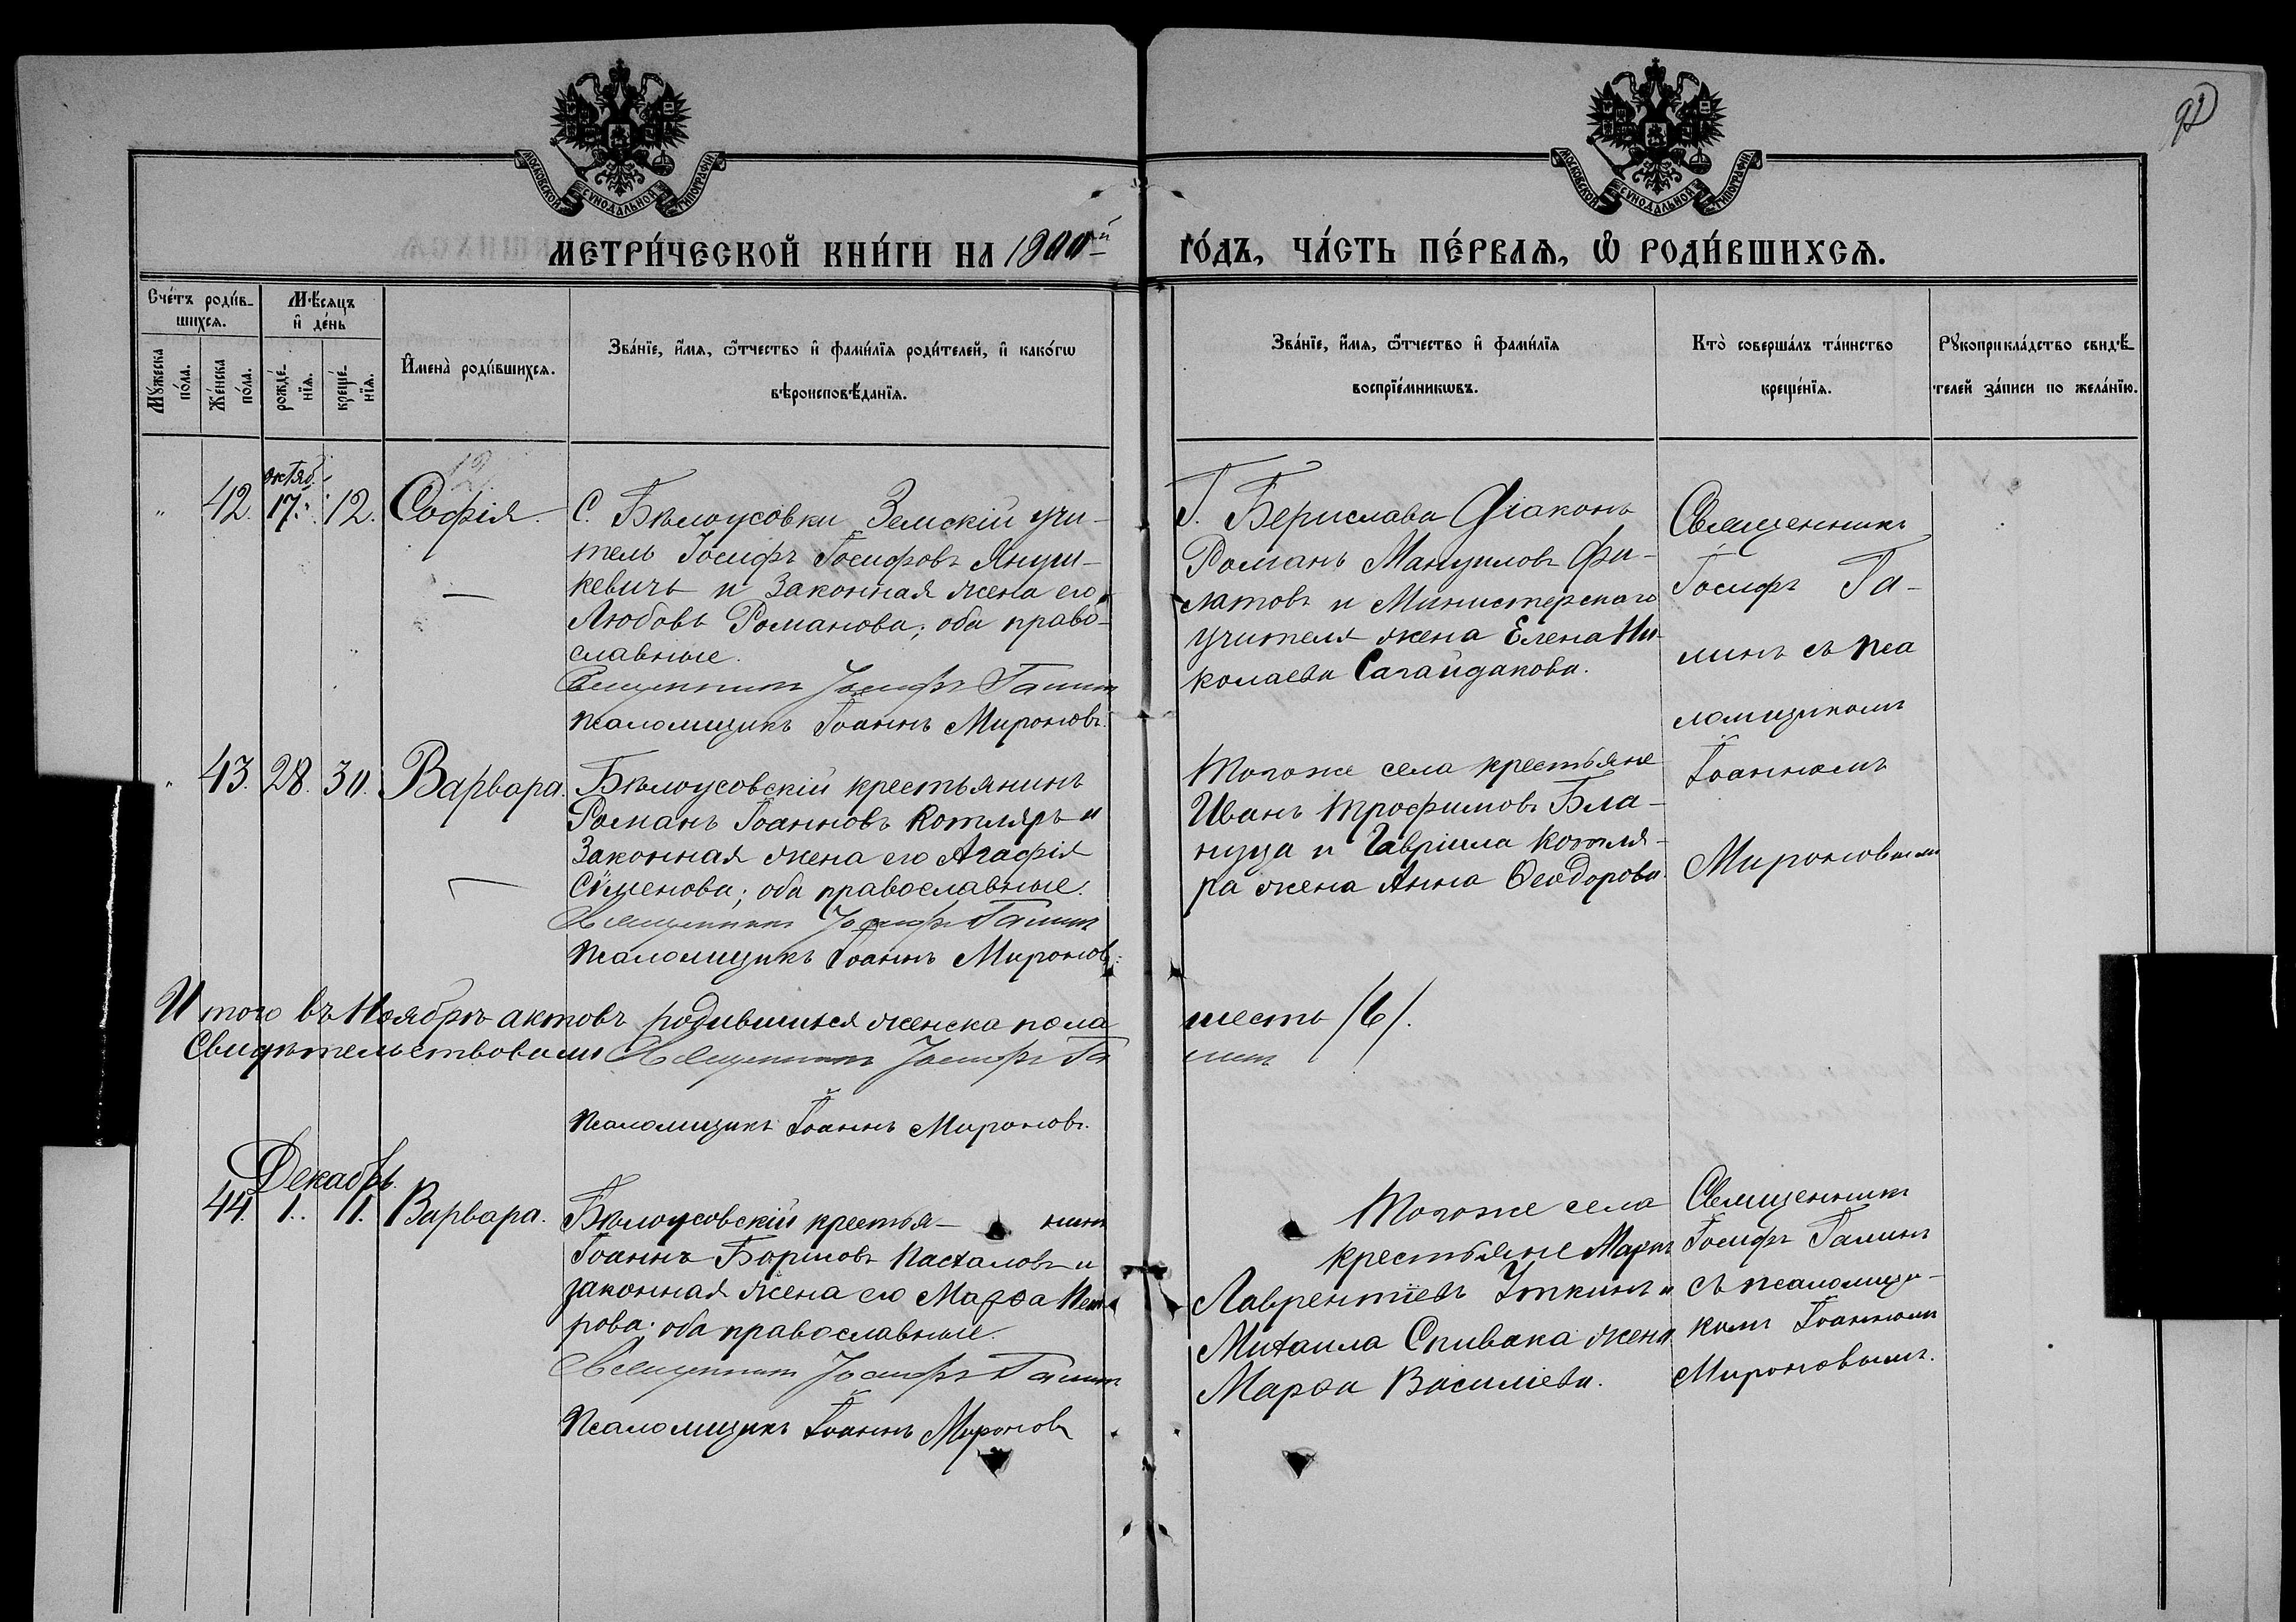 92
МОСКОВСКОЙ СѴНОДАЛЬНОЙ ТИПОГРАФІИ
МОСКОВСКОЙ СѴНОДАЛЬНОЙ ТИПОГРАФІИ
МЕТРИ́ЧЕСКОЙ КНИ́ГИ НА 1900й ГО́ДЪ, ЧА́СТЬ ПЕ́РВАѦ, Ѽ РОДИ́ВШИХСѦ.
Сче́тъ роди́в-
шихсѧ.
Мꙋ́жеска
по́ла.
Же́нска
по́ла.
Мѣ́сѧцъ
и҆ де́нь
рожде́-
нїѧ.
креще́-
нїѧ.
И҆мена̀ роди́вшихсѧ.
Зва́нїе, и҆́мѧ, ѻ҆́тчество и҆ фами́лїѧ роди́телей, и҆ како́гѡ
вѣроисповѣ́данїѧ.
Зва́нїе, и҆́мѧ, ѻ҆́тчество и҆ фами́лїѧ
воспрїе́мникѡвъ.
Кто̀ соверша́лъ та́инство
креще́нїѧ.
Рꙋкоприкла́дство свидѣ́-
телей за́писи по жела́нїю.
12
Октяб.
" 42. 17. 12. Софія.
С. Бѣлоусовки Земскій учи-
тель Іосифъ Іосифовъ Януш-
кевичъ и законная жена его
Любовь Романова; оба право-
славные.
Священникъ Іосифъ Галинъ
псаломщикъ Іоаннъ Мироновъ.
Г. Берислава Діаконъ
Романъ Мануиловъ Фи-
латовъ и Министерскаго
учителя жена Елена Ни-
колаева Сагайдакова.
Священникъ
Іосифъ Га-
линъ съ пса
ломщикомъ
Іоанномъ
Мироновымъ
" 43. 28. 30. Варвара.
Бѣлоусовскій крестьянинъ
Романъ Іоанновъ Котляръ и
законная жена его Агафія
Сѵменова; оба православные.
Священникъ Іосифъ Галинъ
Псаломщикъ Іоаннъ Мироновъ.
Тогоже села крестьяне
Иванъ Трофимовъ Бла-
нуца и Гавріила Котля-
ра жена Анна Ѳеодорова.
Итого въ Ноябрѣ актовъ родившихся женска пола шесть /6/.
Свидѣтельствовали Священникъ Іосифъ Галинъ
Псаломщикъ Іоаннъ Мироновъ.
Декабрь.
44. 1. 11. Варвара.
Бѣлоусовскій крестья- нинъ
Іоаннъ Борисовъ Пасхаловъ и
законная жена его Марѳа Пет-
рова; оба православные.
Священникъ Іосифъ Галинъ
Псаломщикъ Іоаннъ Мироновъ
Тогоже села
крестьяне Маркъ
Лаврентіевъ Уткинъ и
Михаила Спивака жена
Марѳа Василіева.
Священникъ
Іосифъ Галинъ
съ псаломщи-
комъ Іоанномъ
Мироновымъ.